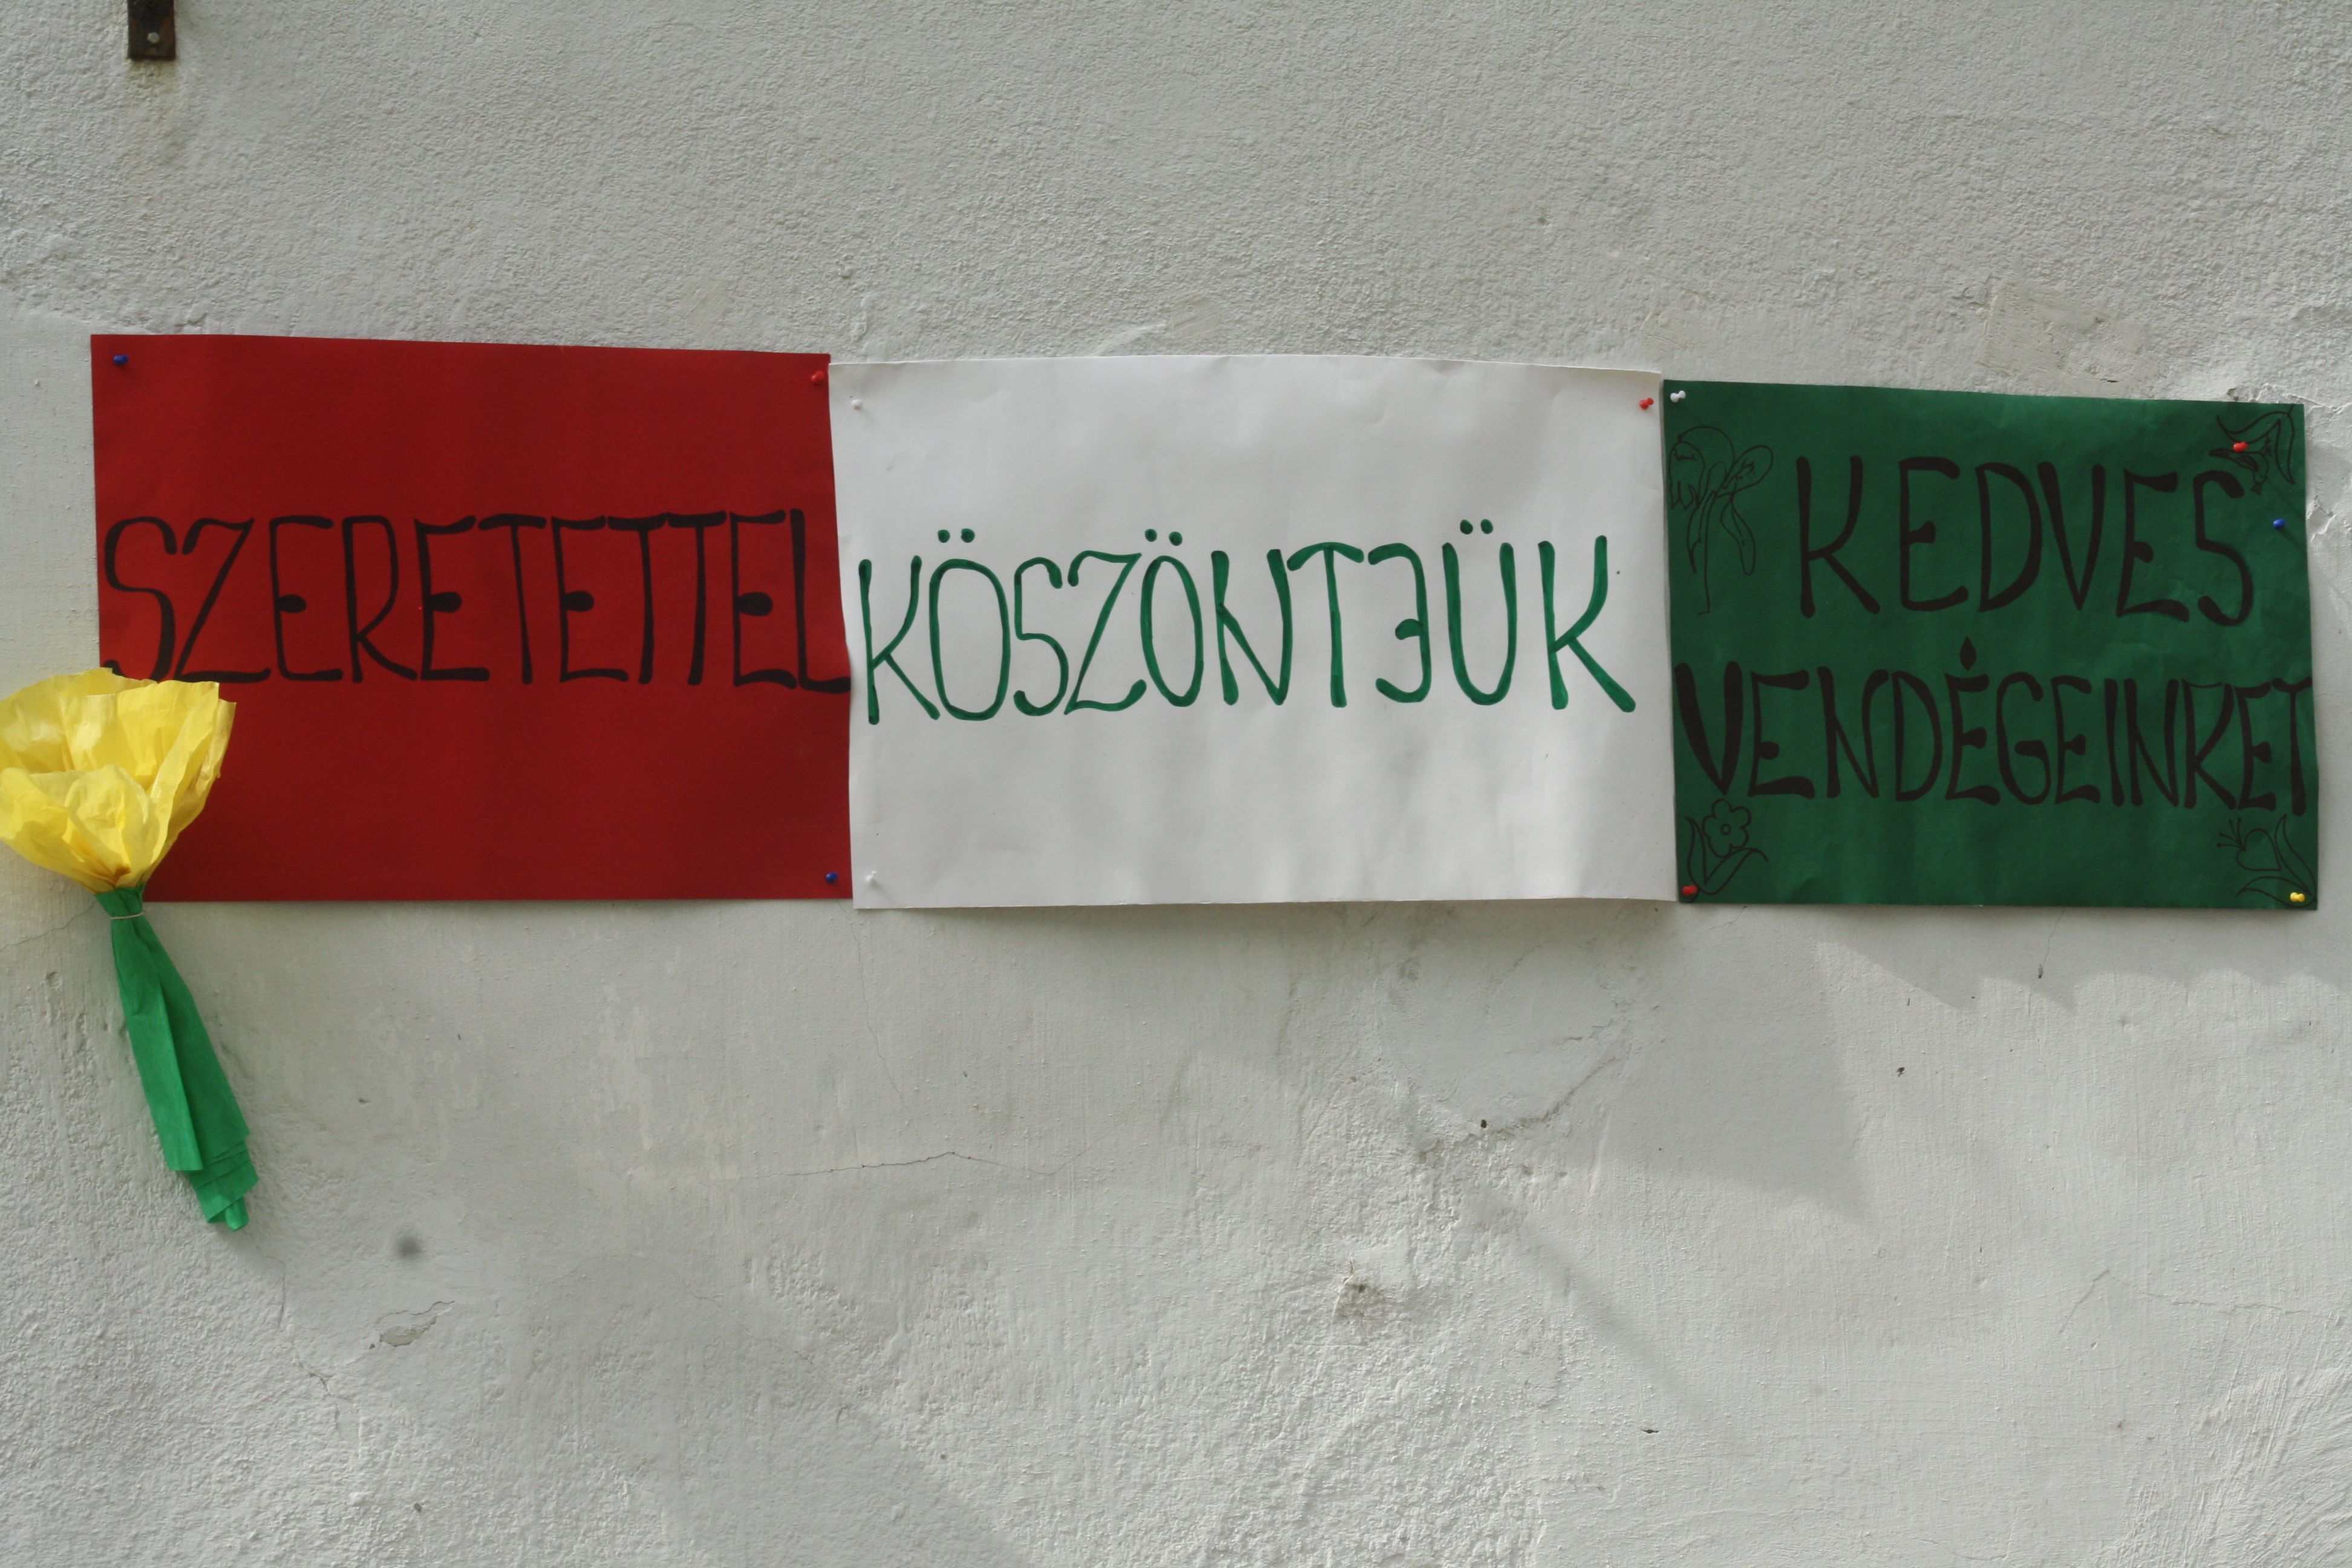 SZERETETTEL
KÖSZÖNTJÜK
KEDVES
VENDÉGEINKET